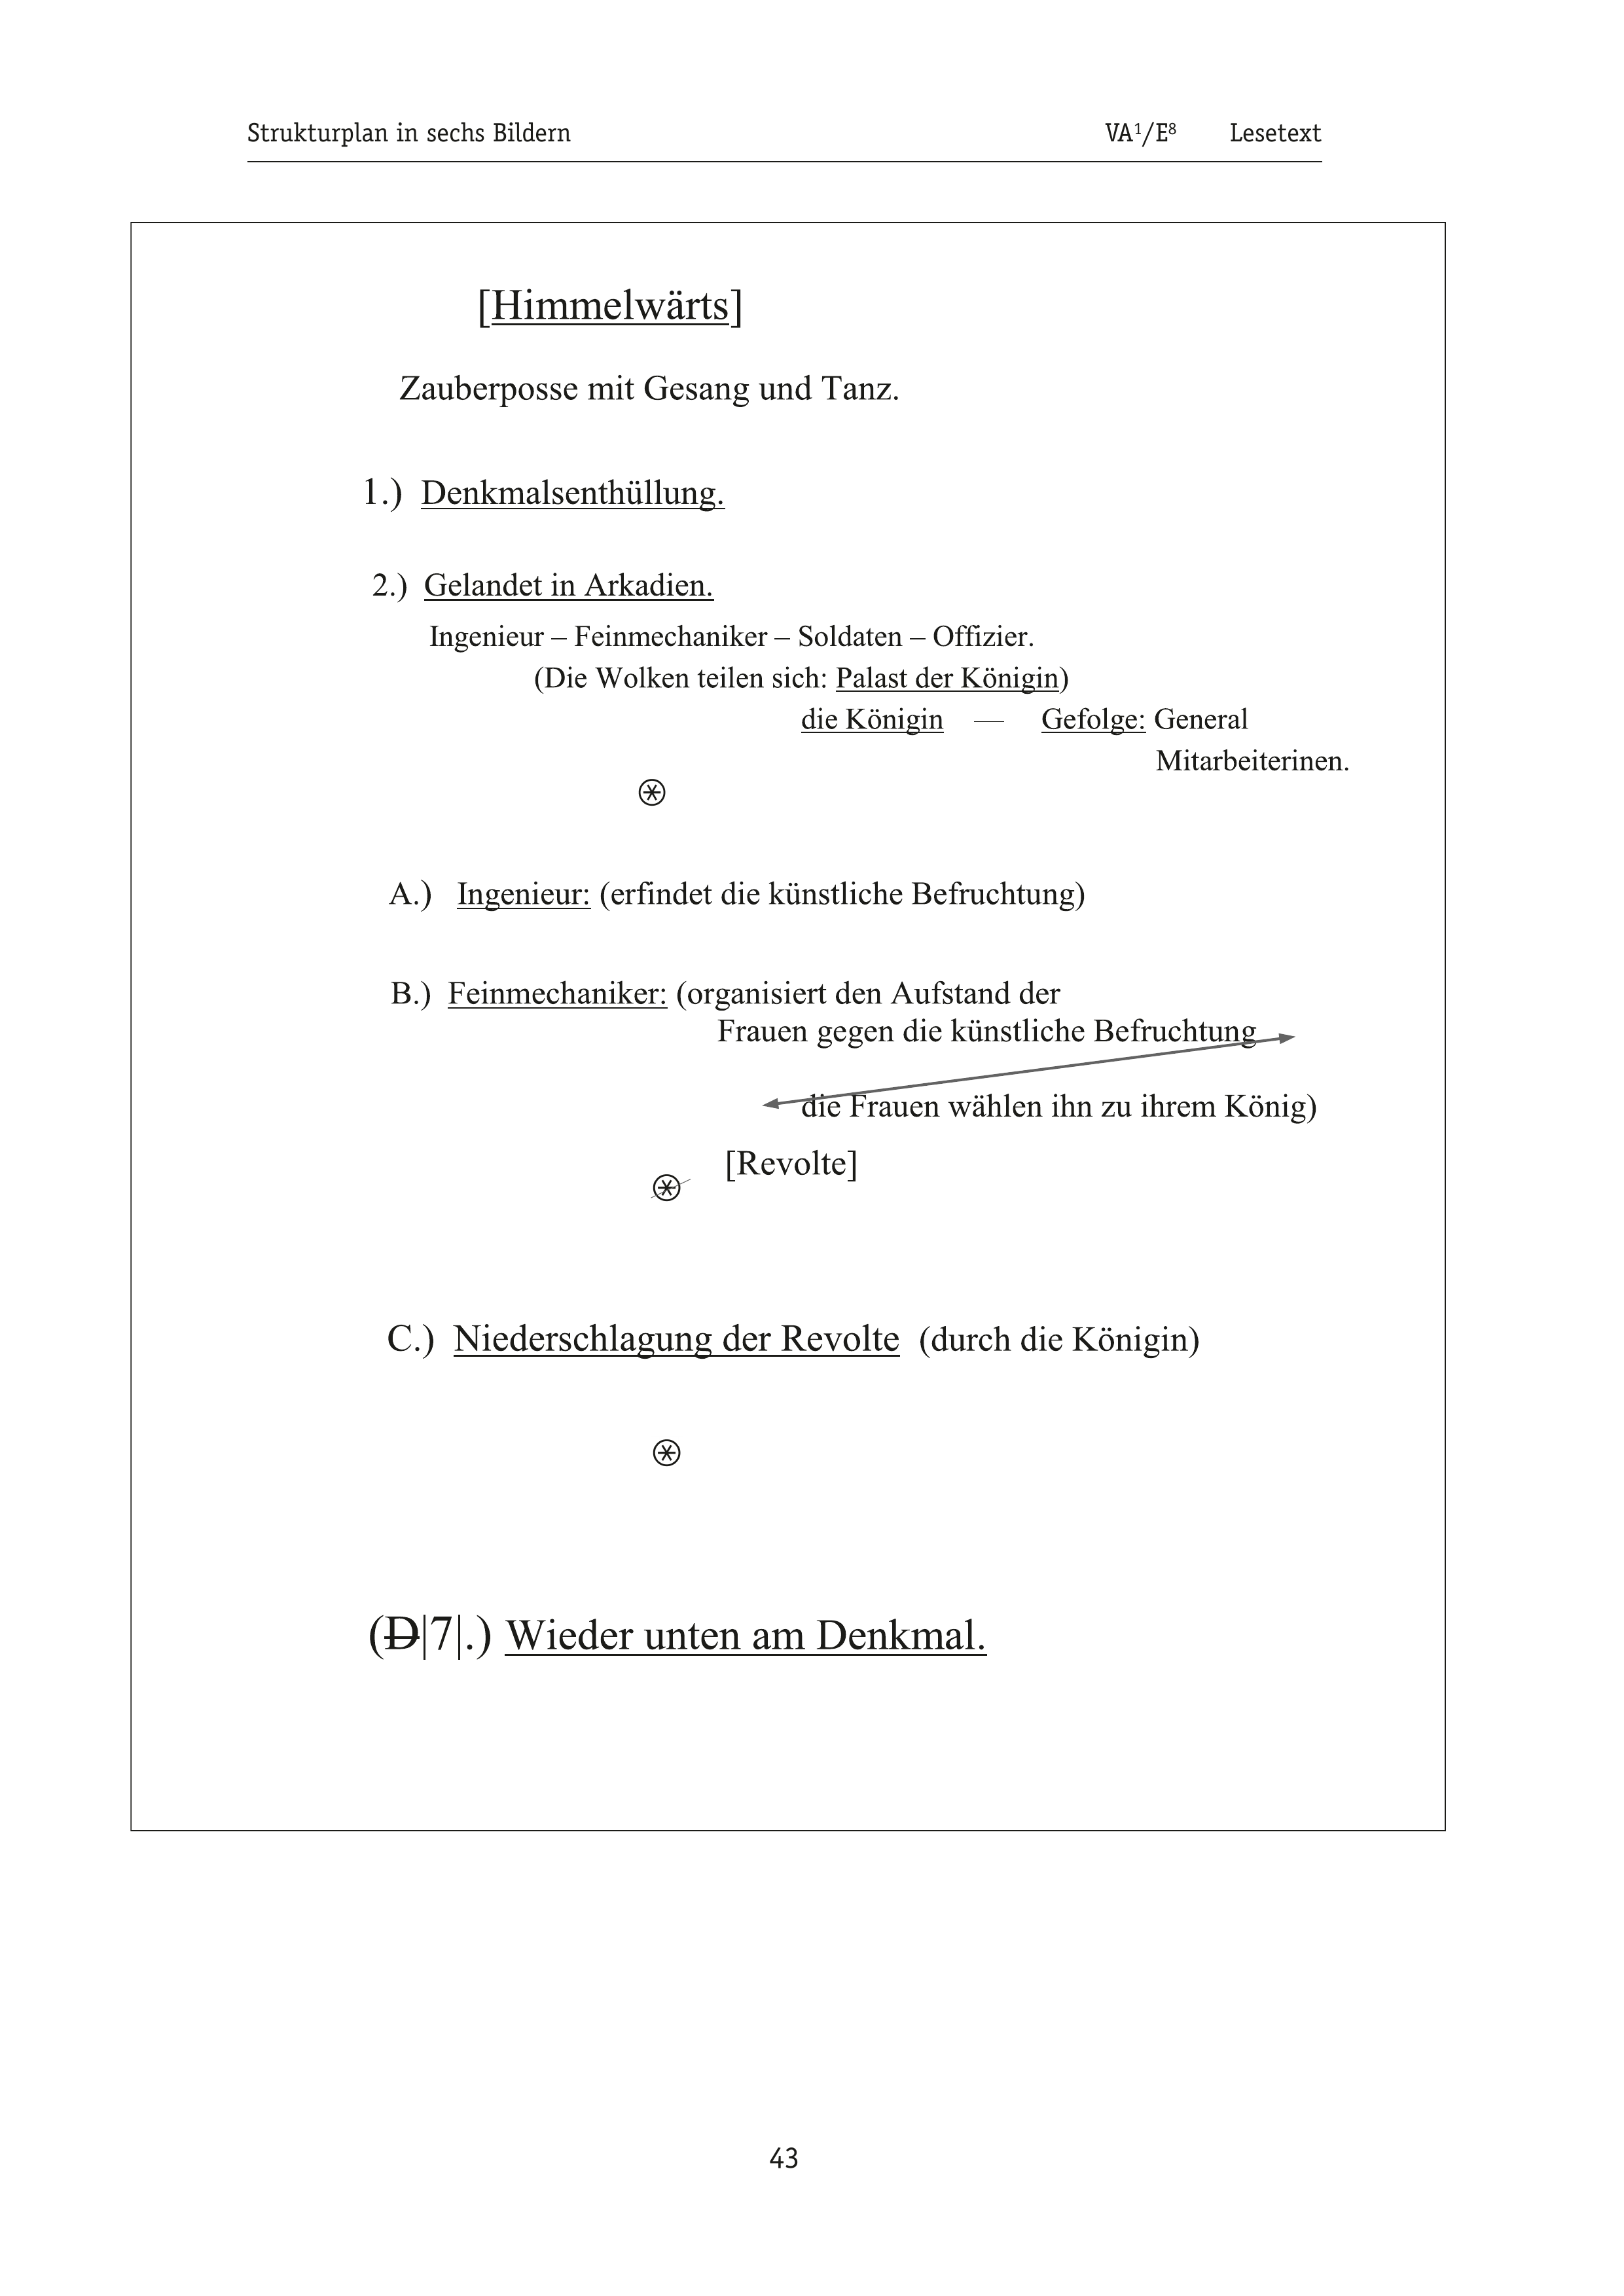 Strukturplan in sechs Bildern VA¹/E⁸ Lesetext
[Himmelwärts]
Zauberposse mit Gesang und Tanz.
1.) Denkmalsenthüllung.
2.) Gelandet in Arkadien.
Ingenieur – Feinmechaniker – Soldaten – Offizier.
(Die Wolken teilen sich: Palast der Königin)
die Königin — Gefolge: General
Mitarbeiterinen.
A.) Ingenieur: (erfindet die künstliche Befruchtung)
B.) Feinmechaniker: (organisiert den Aufstand der
Frauen gegen die künstliche Befruchtung
die Frauen wählen ihn zu ihrem König)
[Revolte]
C.) Niederschlagung der Revolte (durch die Königin)
(D|7|.) Wieder unten am Denkmal.
43